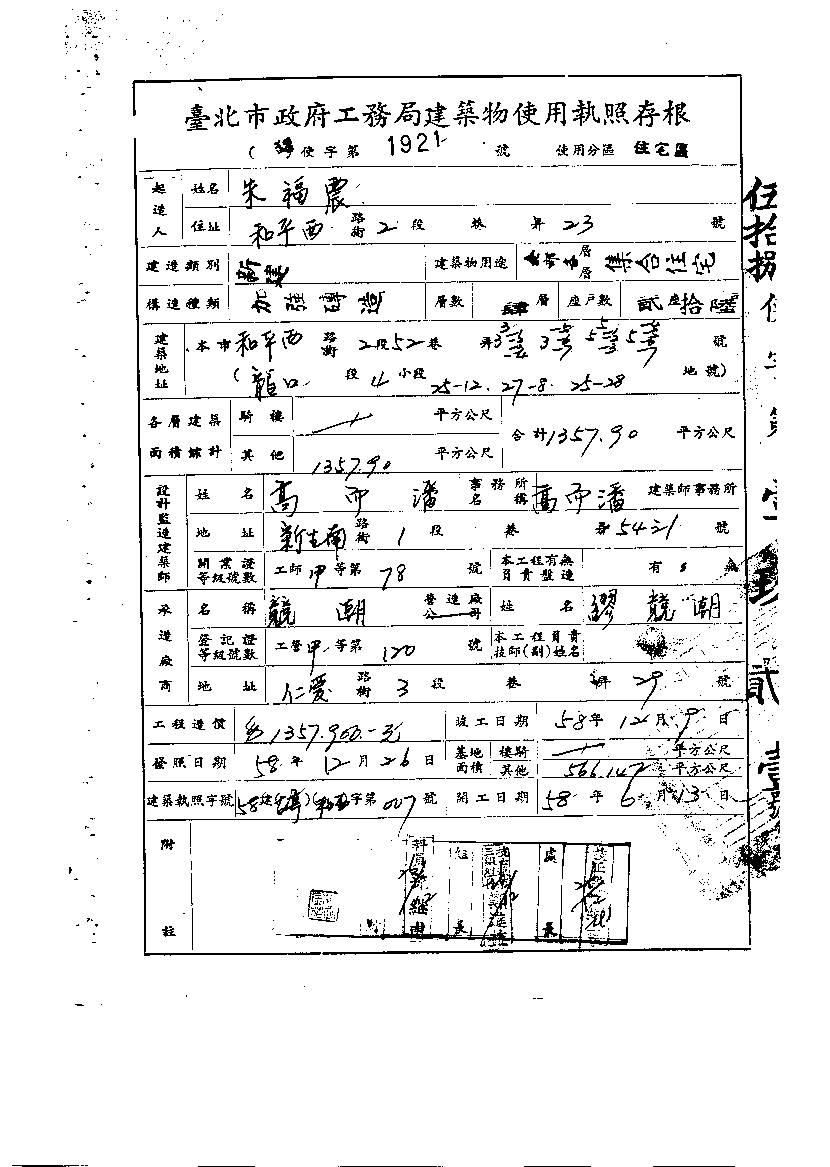 臺北市政府工務局建築物使用執照存根
( 使字第 1921 號 使用分區 住宅區
起造人 姓名 朱福農
住址 和平西 路街 2 段 巷 弄 23 號
建造類別 新建 建築物用途 層層 集合住宅
構造種類 加強磚造 層數 肆 層 座戶數 貳座拾陸戶
建築地址 本市 和平西 路街 2段52巷 弄 號
( 龍口 段 4 小段 25-12. 27-8. 25-28 地號)
各層建築面積總計 騎樓 平方公尺 合計 1357.90 平方公尺
其他 1357.90 平方公尺
設計監造建築師 姓名 高而潘 事務所名稱 高而潘 建築師事務所
地址 新生南 路街 1 段 巷 弄 54之1 號
開業證等級號數 工師 甲 等第 78 號 本工程有無負責監造 有 無
承造廠商 名稱 競潮 營造廠公司 姓名 繆競潮
登記證等級號數 工營 甲 等第 120 號 本工程負責技師(副)姓名
地址 仁愛 路街 3 段 巷 弄 29 號
工程造價 1357.900.-元 竣工日期 58年12月9日
發照日期 58年12月26日 基地面積 樓騎 平方公尺
其他 566.147 平方公尺
建築執照字號 58建 字第 007 號 開工日期 58年6月13日
附註
科 組長 處長
伍拾捌使字第壹玖貳壹